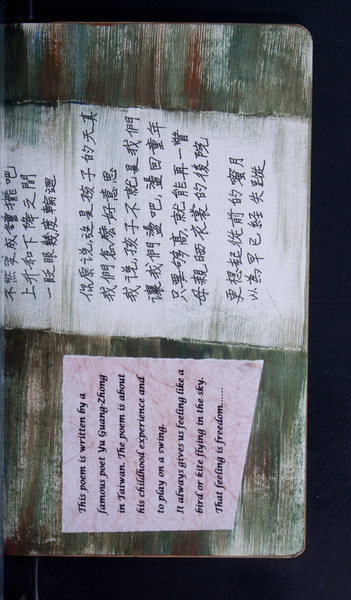 不然變成鐘擺吧
上升和下降之間
一眨眼幾度輪迴
你说,这是孩子的天真
我們怎麼好意思
我说,孩子不就是我們
讓我們盪吧,盪回童年
只要夠高,就能再一瞥
母親晒衣裳的後院
更想起從前的蜜月
以為早已經失蹤
This poem is written by a
famous poet Yu Guang-Zhong
in Taiwan. The poem is about
his childhood experience and
to play on a swing.
It always gives us feeling like a
bird or kite flying in the sky.
That feeling is freedom......